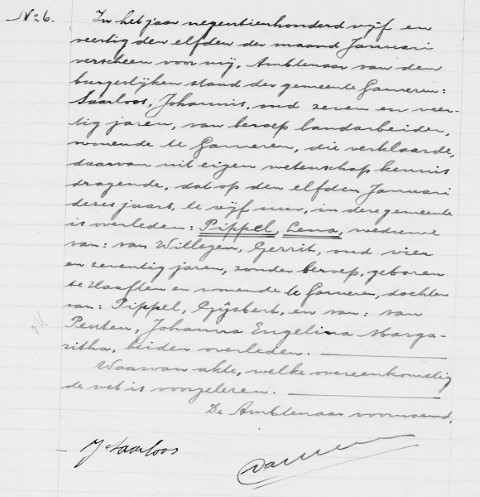 No 6. In het jaar negentienhonderd vijf en
veertig den elfden der maand Januari
verscheen voor mij, Ambtenaar van den
burgerlijken stand der gemeente Gameren:
Saarloos, Johannis, oud zeven en veer-
tig jaren, van beroep landarbeider,
wonende te Gameren, die verklaarde,
daarvan uit eigen wetenschap kennis
dragende, dat op den elfden Januari
dezes jaars, te vijf ure, in deze gemeente
is overleden: Pippel, Lena, weduwe
van: van Willegen, Gerrit, oud vier
en zeventig jaren, zonder beroep, geboren
te Haaften en wonende te Gameren, dochter
van: Pippel, Gijsbert, en van: van
Penten, Johanna Engelina Marga-
ritha, beiden overleden.
Waarvan akte, welke overeenkomstig
de wet is voorgelezen.
De Ambtenaar voornoemd,
J Saarloos